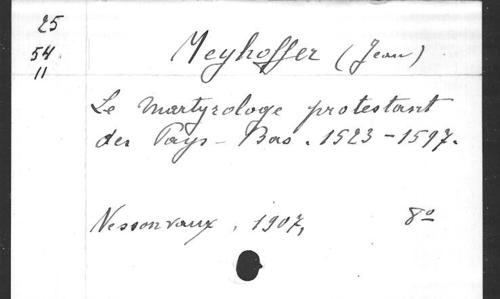 25
54
11
Meyhoffer (Jean)
Le martyrologe protestant
des Pays-Bas. 1523-1597.
Nessonvaux, 1907, 8º